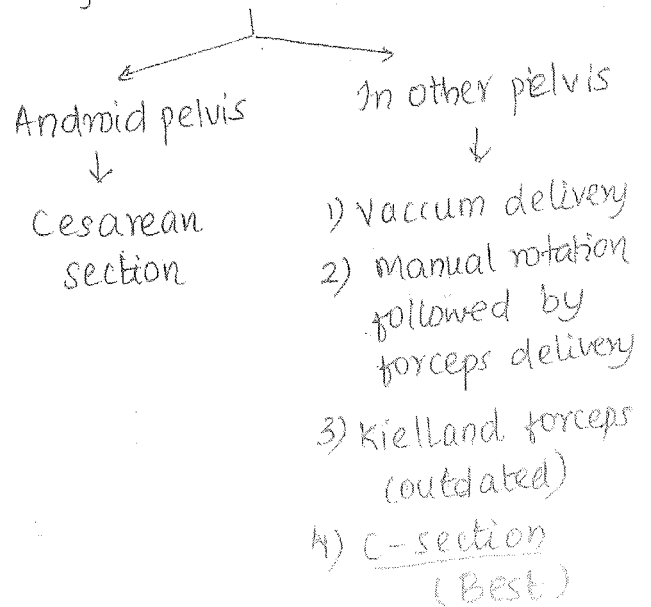 Android pelvis
Cesarean
section
In other pelvis
1) Vaccum delivery
2) Manual rotation
followed by
forceps delivery
3) Kielland forceps
(outdated)
4) C-section
(Best)